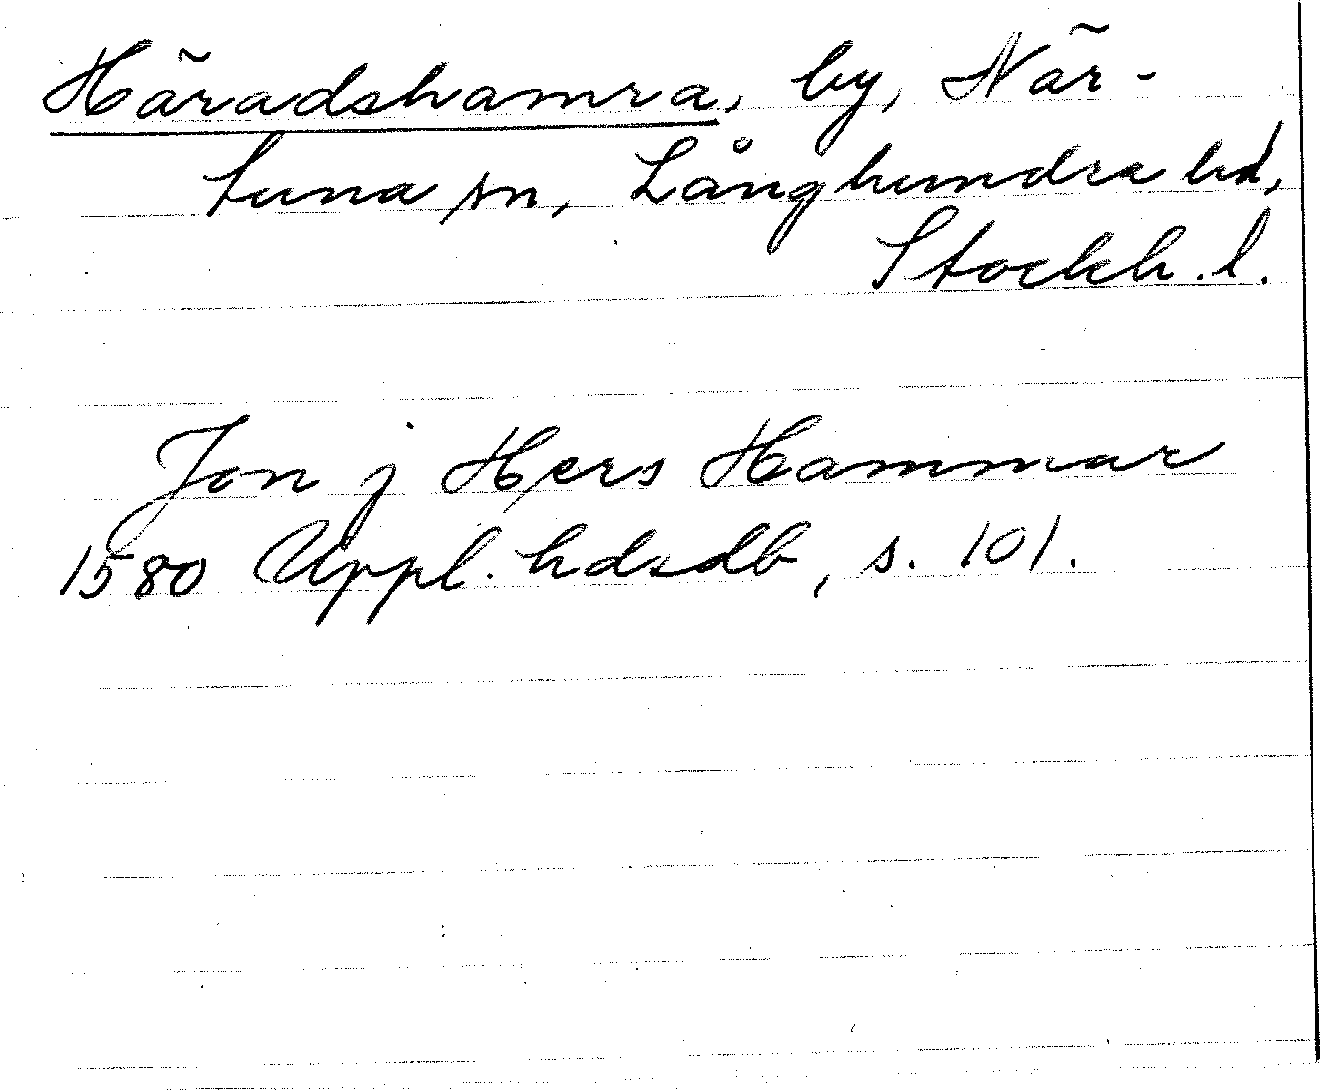 Häradshamra, by, När-
tuna sn, Långhundra hd,
Stockh. l.
Jon j Hers Hammar
1580 Uppl. hdsdb, s. 101.